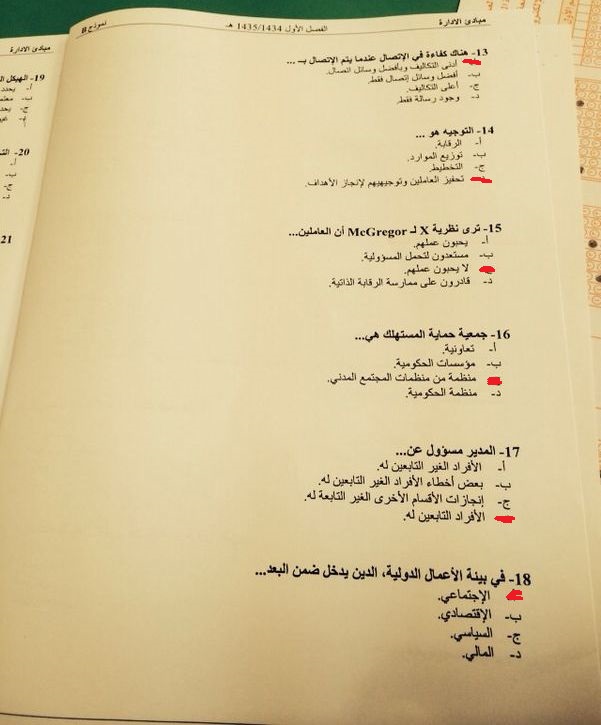 مبادئ الادارة
الفصل الأول 1435/1434 هـ
نموذج B
13- هناك كفاءة في الإتصال عندما يتم الإتصال بـ ...
أدنى التكاليف وبأفضل وسائل اتصال.
ب- أفضل وسائل إتصال فقط.
ج- أعلى التكاليف.
د- وجود رسالة فقط.
14- التوجيه هو ...
أ- الرقابة.
ب- توزيع الموارد.
ج- التخطيط.
تحفيز العاملين وتوجيههم لإنجاز الأهداف.
15- ترى نظرية X لـ McGregor أن العاملين...
أ- يحبون عملهم.
ب- مستعدون لتحمل المسؤولية.
لا يحبون عملهم.
د- قادرون على ممارسة الرقابة الذاتية.
16- جمعية حماية المستهلك هي...
أ- تعاونية.
ب- مؤسسات الحكومية.
منظمة من منظمات المجتمع المدني.
د- منظمة الحكومية.
17- المدير مسؤول عن...
أ- الأفراد الغير التابعين له.
ب- بعض أخطاء الأفراد الغير التابعين له.
ج- إنجازات الأقسام الأخرى الغير التابعة له.
الأفراد التابعين له.
18- في بيئة الأعمال الدولية، الدين يدخل ضمن البعد...
الإجتماعي.
ب- الإقتصادي.
ج- السياسي.
د- المالي.
مبادئ الادارة
19- الهيكل
أ- يحدد
ب-
ج-
20-
أ-
ب-
ج-
د-
21